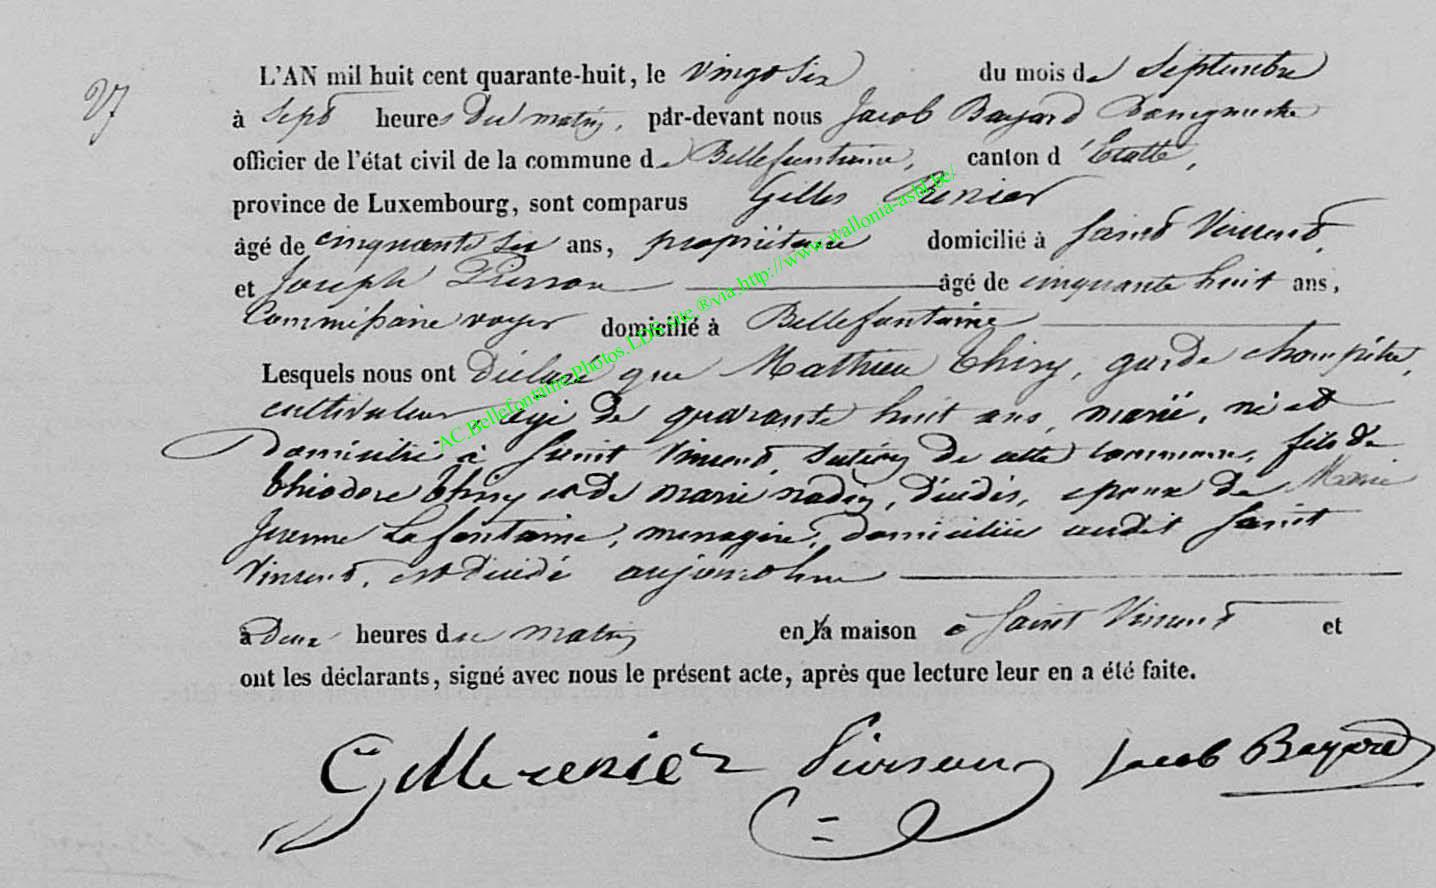 27
L'AN mil huit cent quarante-huit, le vingt six du mois de Septembre
à sept heures du matin, par-devant nous Jacob Bayard Bourgmestre
officier de l'état civil de la commune de Bellefontaine, canton d'Etalle,
province de Luxembourg, sont comparus Gilles Renier
âgé de cinquante six ans, propriétaire domicilié à Saint Vincent,
et Joseph Pierson âgé de cinquante huit ans,
Commissaire voyer domicilié à Bellefontaine
Lesquels nous ont Déclaré que Mathieu Thiry, garde champêtre,
cultivateur, âgé de quarante huit ans, marié, né et
domicilié à Saint Vincent, section de cette commune, fils de
Théodore Thiry et de marie nadin, décédés, époux de Marie
Jeanne Lafontaine, menagère, domiciliée audit Saint
Vincent, est décédé aujourdhui
à Deux heures du matin en la maison à Saint Vincent et
ont les déclarants, signé avec nous le présent acte, après que lecture leur en a été faite.
Gille renier Pierson Jacob Bayard
AC.Bellefontaine.Photos.LDS.site.®via.http://www.wallonia-asbl.be/